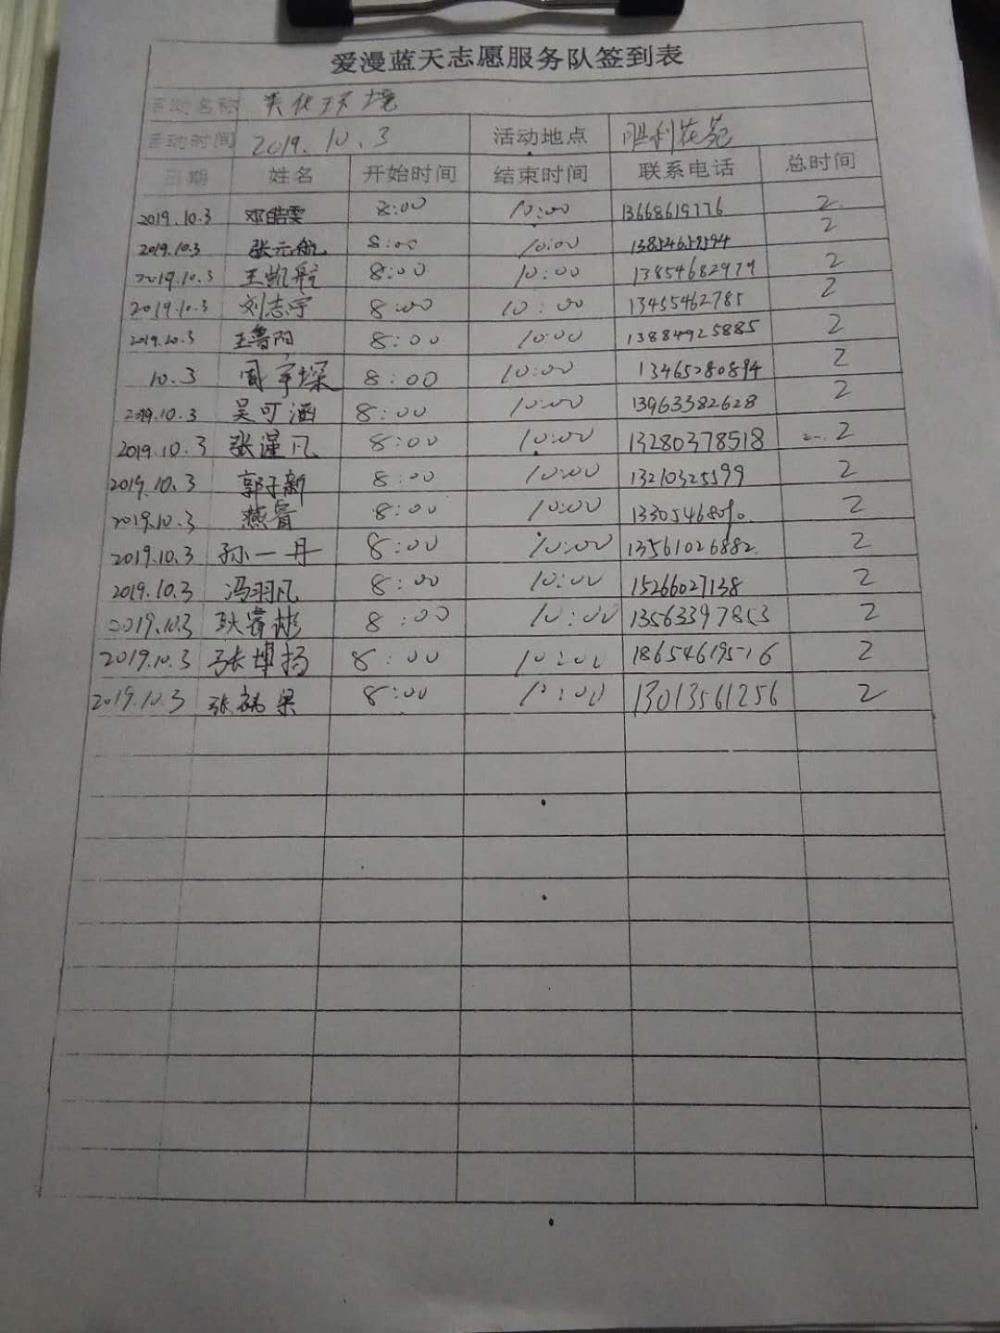 爱漫蓝天志愿服务队签到表
活动名称 美化环境
活动时间 2019.10.3 活动地点 胜利花苑
日期 姓名 开始时间 结束时间 联系电话 总时间
2019.10.3 邓皓雯 8:00 10:00 13668619776 2
2019.10.3 张元航 8:00 10:00 13854652594 2
2019.10.3 王凯航 8:00 10:00 13854682979 2
2019.10.3 刘志宇 8:00 10:00 13455462785 2
2019.10.3 王鲁阳 8:00 10:00 13884925885 2
10.3 周宇燦 8:00 10:00 13465280894 2
2019.10.3 吴可涵 8:00 10:00 13963382628 2
2019.10.3 张谨凡 8:00 10:00 13280378518 2
2019.10.3 郭子新 8:00 10:00 13210325199 2
2019.10.3 燕睿 8:00 10:00 2
2019.10.3 孙一丹 8:00 10:00 13561026882 2
2019.10.3 冯羽凡 8:00 10:00 15266027138 2
2019.10.3 耿睿彬 8:00 10:00 13563397853 2
2019.10.3 张坤扬 8:00 10:00 18654619516 2
2019.10.3 张祸果 8:00 10:00 13013561256 2